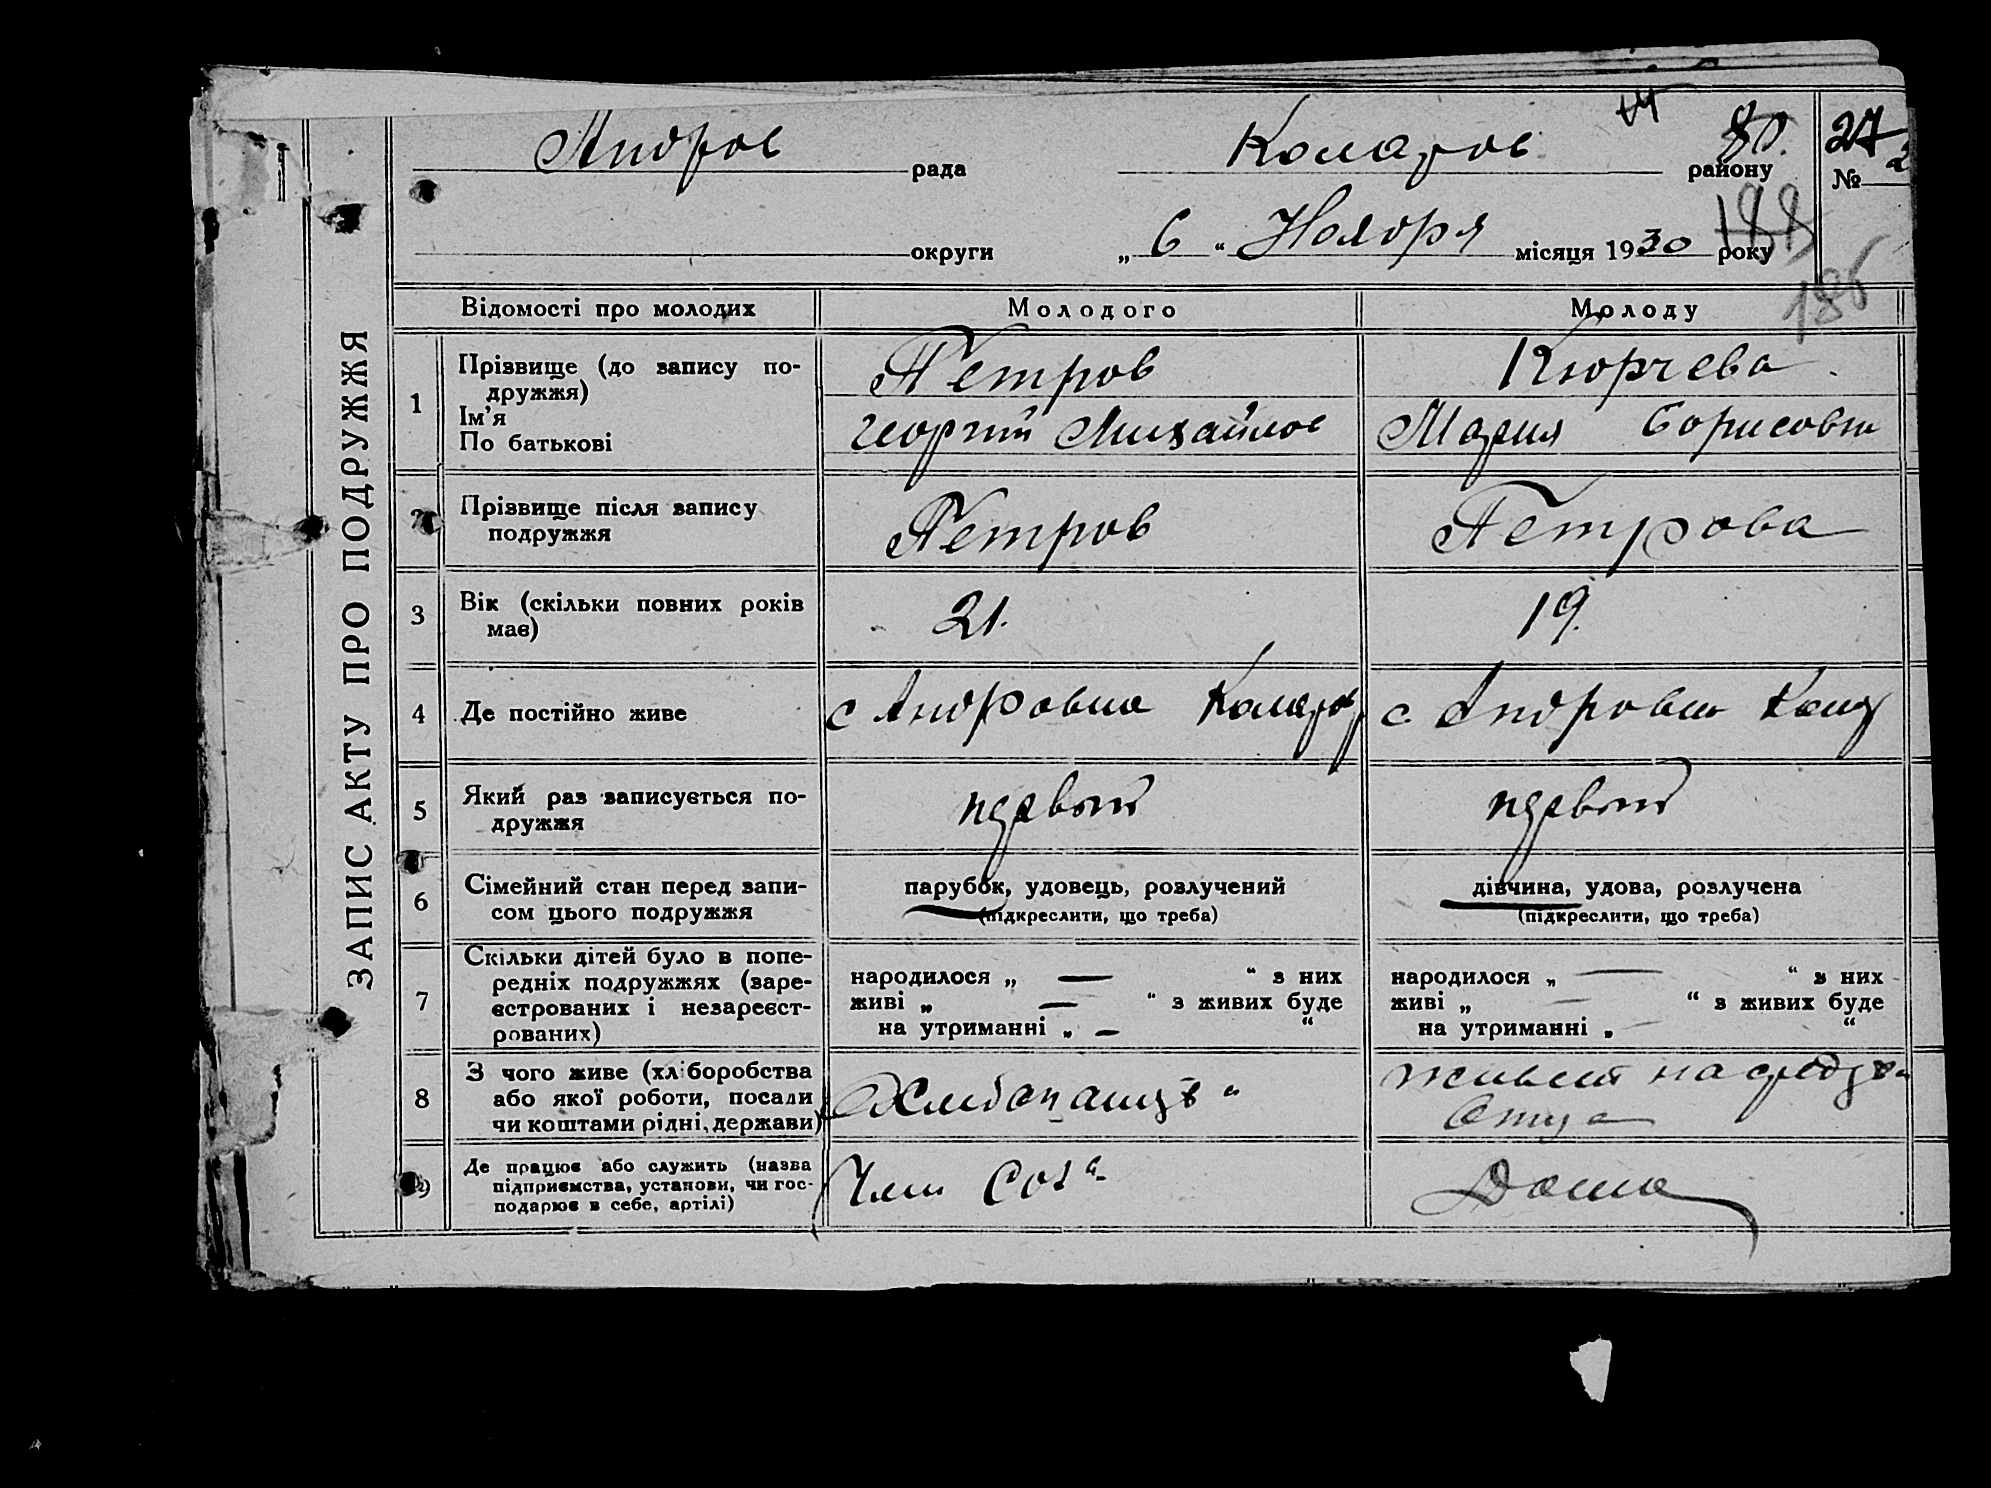 ЗАПИС АКТУ ПРО ПОДРУЖЖЯ
Андров рада Коларов району 80. 27
№ 2
округи „ 6 “ Ноября місяця 1930 року 188
186
Відомості про молодих Молодого Молоду
1 Прізвище (до запису по-
дружжя)
Ім’я
По батькові
Петров Кюрчева
Георгий Михайлов Мария Борисовна
2 Прізвище після запису
подружжя
Петров Петрова
3 Вік (скільки повних років
має)
21. 19.
4 Де постійно живе с Андровка Коларов с. Андровка
5 Який раз записується по-
дружжя
первый первый
6 Сімейний стан перед запи-
сом цього подружжя
парубок, удовець, розлучений дівчина, удова, розлучена
(підкреслити, що треба) (підкреслити, що треба)
7 Скільки дітей було в попе-
редніх подружжях (заре-
єстрованих і незареєст-
рованих)
народилося „ — “ з них народилося „ — “ з них
живі „ — “ з живих буде живі „ — “ з живих буде
на утриманні „ — “ на утриманні „ — “
8 З чого живе (хліборобства
або якої роботи, посади
чи коштами рідні, держави)
Хлебопашцъ живет на средст
Отца
9 Де працює або служить (назва
підприємства, установи, чи гос-
подарює в себе, артілі)
Член Соза Дома